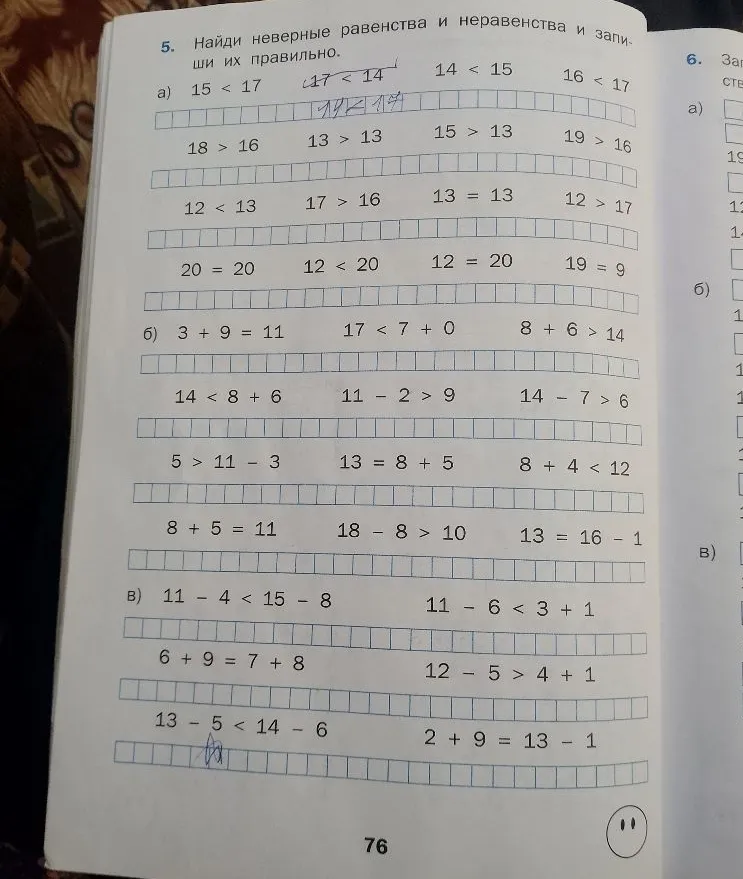 5. Найди неверные равенства и неравенства и запи-
ши их правильно.
а) 15 < 17 17 < 14 14 < 15 16 < 17
14 < 17
18 > 16 13 > 13 15 > 13 19 > 16
12 < 13 17 > 16 13 = 13 12 > 17
20 = 20 12 < 20 12 = 20 19 = 9
б) 3 + 9 = 11 17 < 7 + 0 8 + 6 > 14
14 < 8 + 6 11 − 2 > 9 14 − 7 > 6
5 > 11 − 3 13 = 8 + 5 8 + 4 < 12
8 + 5 = 11 18 − 8 > 10 13 = 16 − 1
в) 11 − 4 < 15 − 8 11 − 6 < 3 + 1
6 + 9 = 7 + 8 12 − 5 > 4 + 1
13 − 5 < 14 − 6 2 + 9 = 13 − 1
76
6.
а)
б)
в)